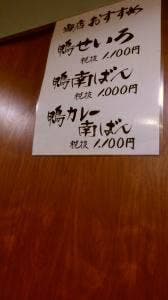 当店おすすめ
鴨せいろ
税抜 1,100円
鴨南ばん
税抜 1,000円
鴨カレー
南ばん
税抜 1,100円